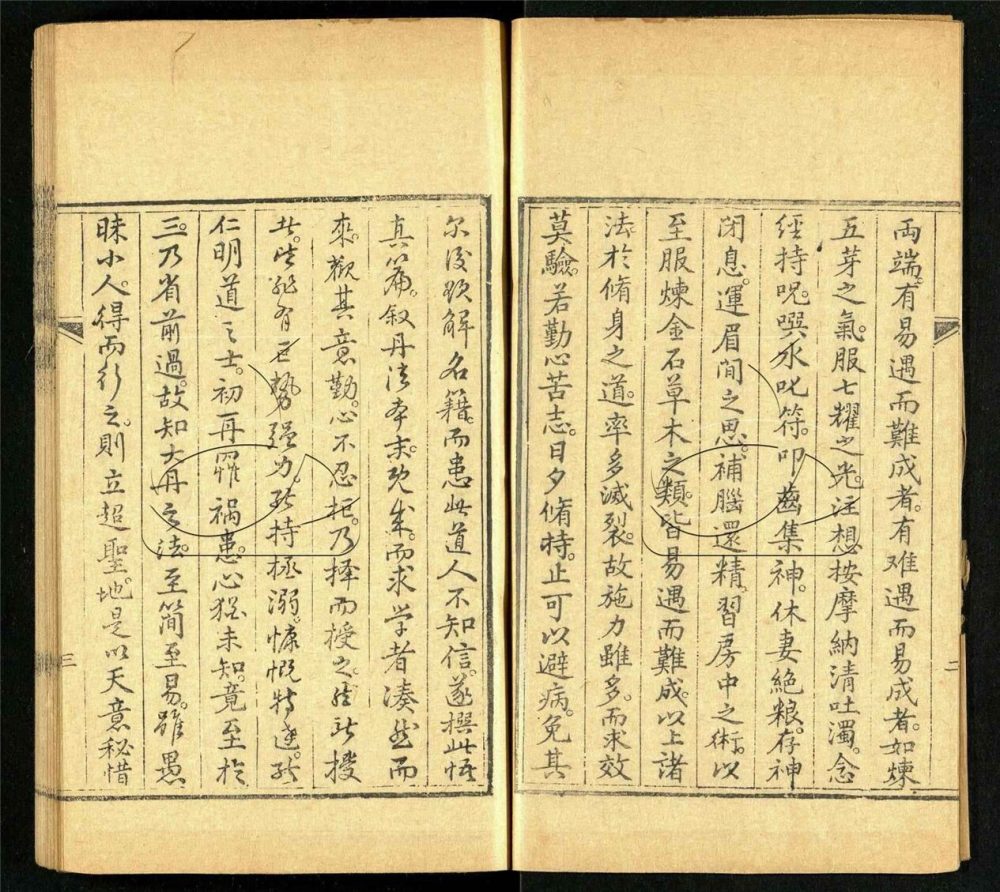 两端。有易遇而難成者。有难遇而易成者。如煉
五芽之氣。服七耀之光。注想按摩。納清吐濁。念
經持呪。噀水叱符。叩齒集神。休妻絶粮。存神
閉息。運眉間之思。補腦還精。習房中之術。以
至服煉金石草木之類。皆易遇而難成。以上諸
法。於脩身之道。率多滅裂。故施力雖多。而求效
莫驗。若勤心苦志。日夕脩持。止可以避病。免其
二
尔後欲解名籍。而患此道人不知信。遂撰此悟
真篇。叙丹法本末。既成。而求学者凑然而
來。觀其意勤。心不忍拒。乃择而授之。然所授
者。皆非有巨勢强力。能持拯溺。慷慨特達。能
仁明道之士。初再罹祸患。心猶未知。竟至於
三。乃省前過。故知大丹之法。至简至易。雖愚
昧小人。得而行之。則立超聖地。是以天意秘惜
三